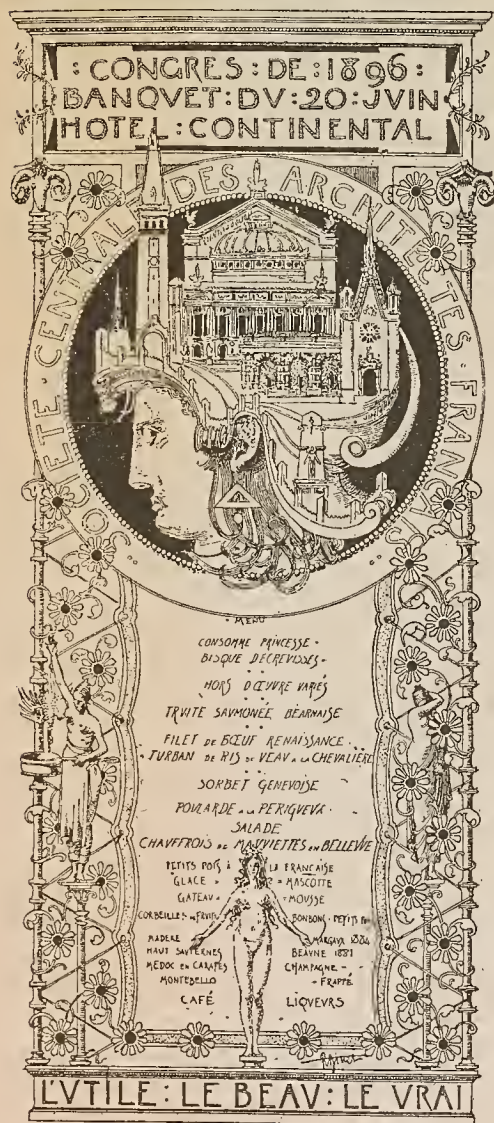 : CONGRES : DE : 1896 :
BANQVET : DV : 20 : JVIN
HOTEL : CONTINENTAL
SOCIETE · CENTRALE · DES · ARCHITECTES · FRANÇAIS
· MENU
CONSOMME PRINCESSE ·
BISQUE D'ECREVISSES ·
HORS D'ŒUVRE VARIÉS
TRVITE SAVMONÉE BEARNAISE
FILET DE BŒUF RENAISSANCE ·
· TURBAN DE RIS DE VEAV A LA CHEVALIÈRE
SORBET GENEVOISE
POVLARDE A LA PERIGVEVX ·
SALADE
CHAVFFROIS DE MAVVIETTES EN BELLEVVE
PETITS POIS À LA FRANCAISE
GLACE = = MASCOTTE
GATEAU = = MOUSSE
CORBEILLES DE FRUITS BONBONS · PETITS
MADERE MARGAUX 1884
HAUT SAUTERNES BEAVNE 1881
MEDOC EN CARAFES CHAMPAGNE =
MONTEBELLO = FRAPPÉ
CAFÉ LIQVEVRS
L'VTILE : LE BEAV : LE VRAI